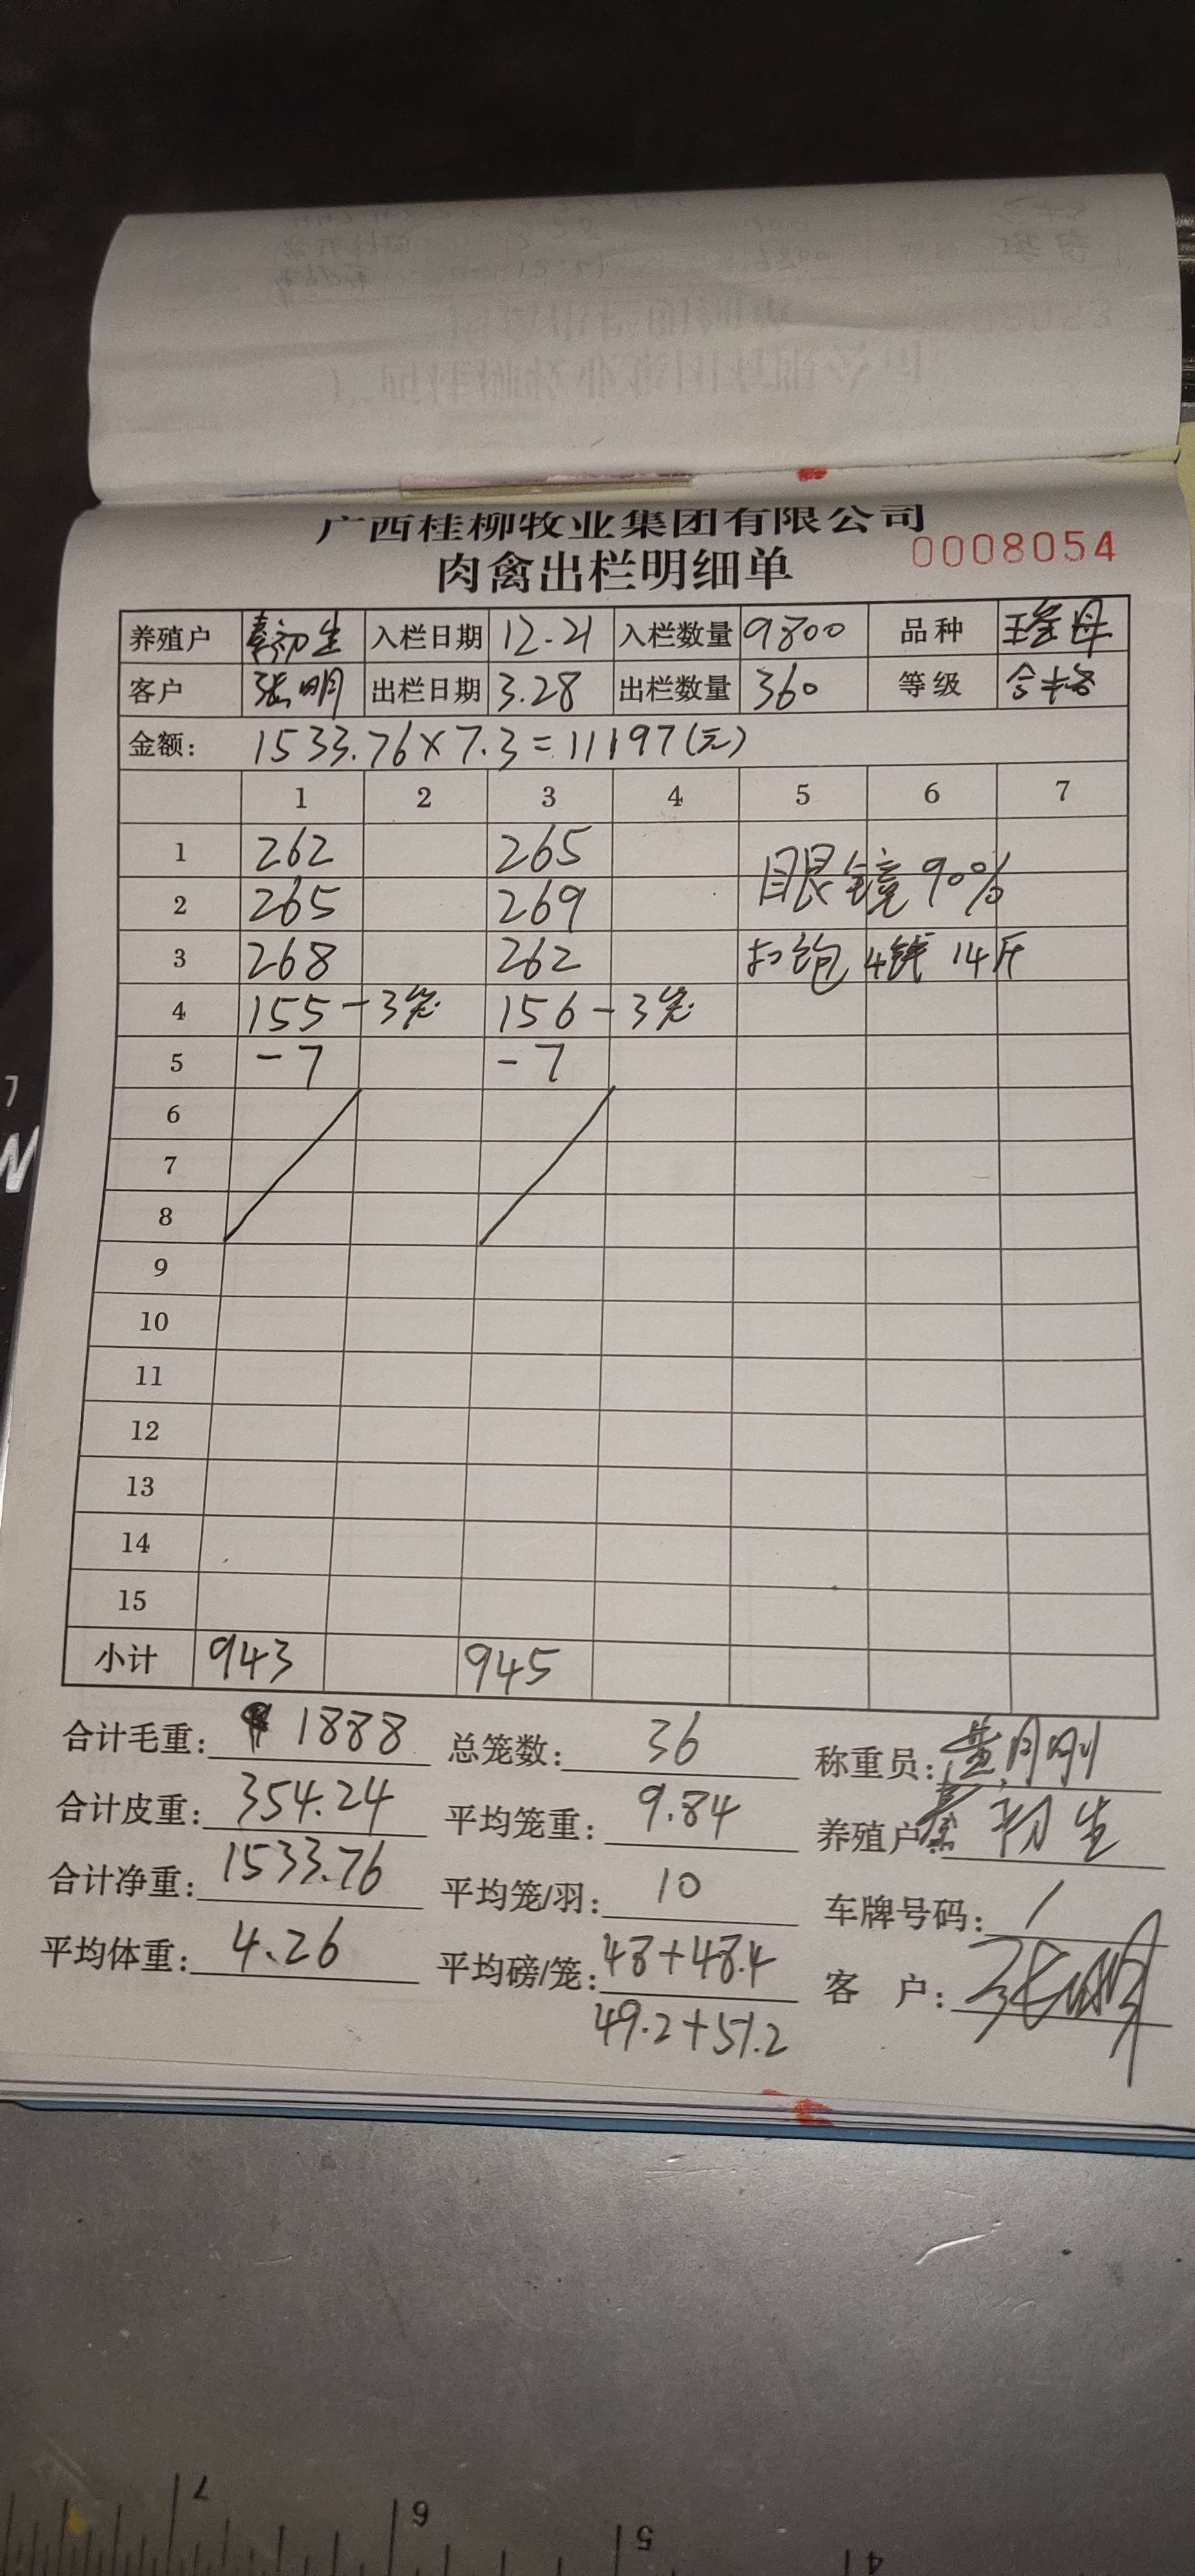 广西桂柳牧业集团有限公司
肉禽出栏明细单 0008054
养殖户 秦初生 入栏日期 12.21 入栏数量 9800 品种 瑶鸡母
客户 张明 出栏日期 3.28 出栏数量 360 等级 合格
金额: 1533.76×7.3=11197(元)
1 2 3 4 5 6 7
1 262 265
眼镜90%
2 265 269
3 268 262 扣饱4钱 14斤
4 155-3笼 156-3笼
5 -7 -7
6
7
8
9
10
11
12
13
14
15
小计 943 945
合计毛重: 1888 总笼数: 36 称重员: 黄月刚
合计皮重: 354.24 平均笼重: 9.84 养殖户 秦初生
合计净重: 1533.76 平均笼/羽: 10 车牌号码: /
平均体重: 4.26 平均磅/笼: 48+48.4 客 户: 张明
49.2+51.2
7 6 5 4